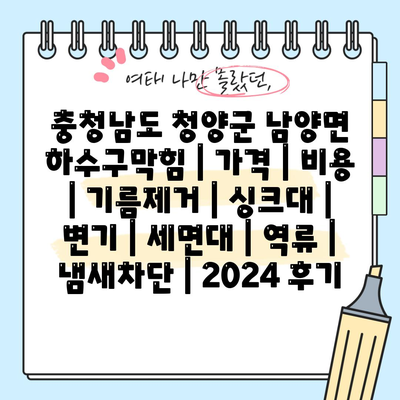 여태 나만 몰랐던,
충청남도 청양군 남양면
하수구막힘 | 가격 | 비용
| 기름제거 | 싱크대 |
변기 | 세면대 | 역류 |
냄새차단 | 2024 후기